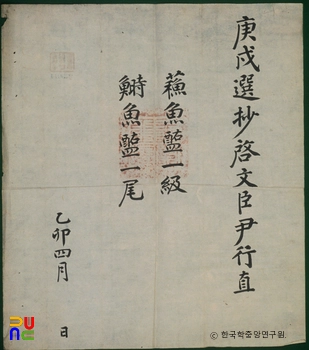 庚戌選抄啓文臣尹行直
蘓魚醢一級
鰣魚醢一尾
乙卯四月 日
© 한국학중앙연구원